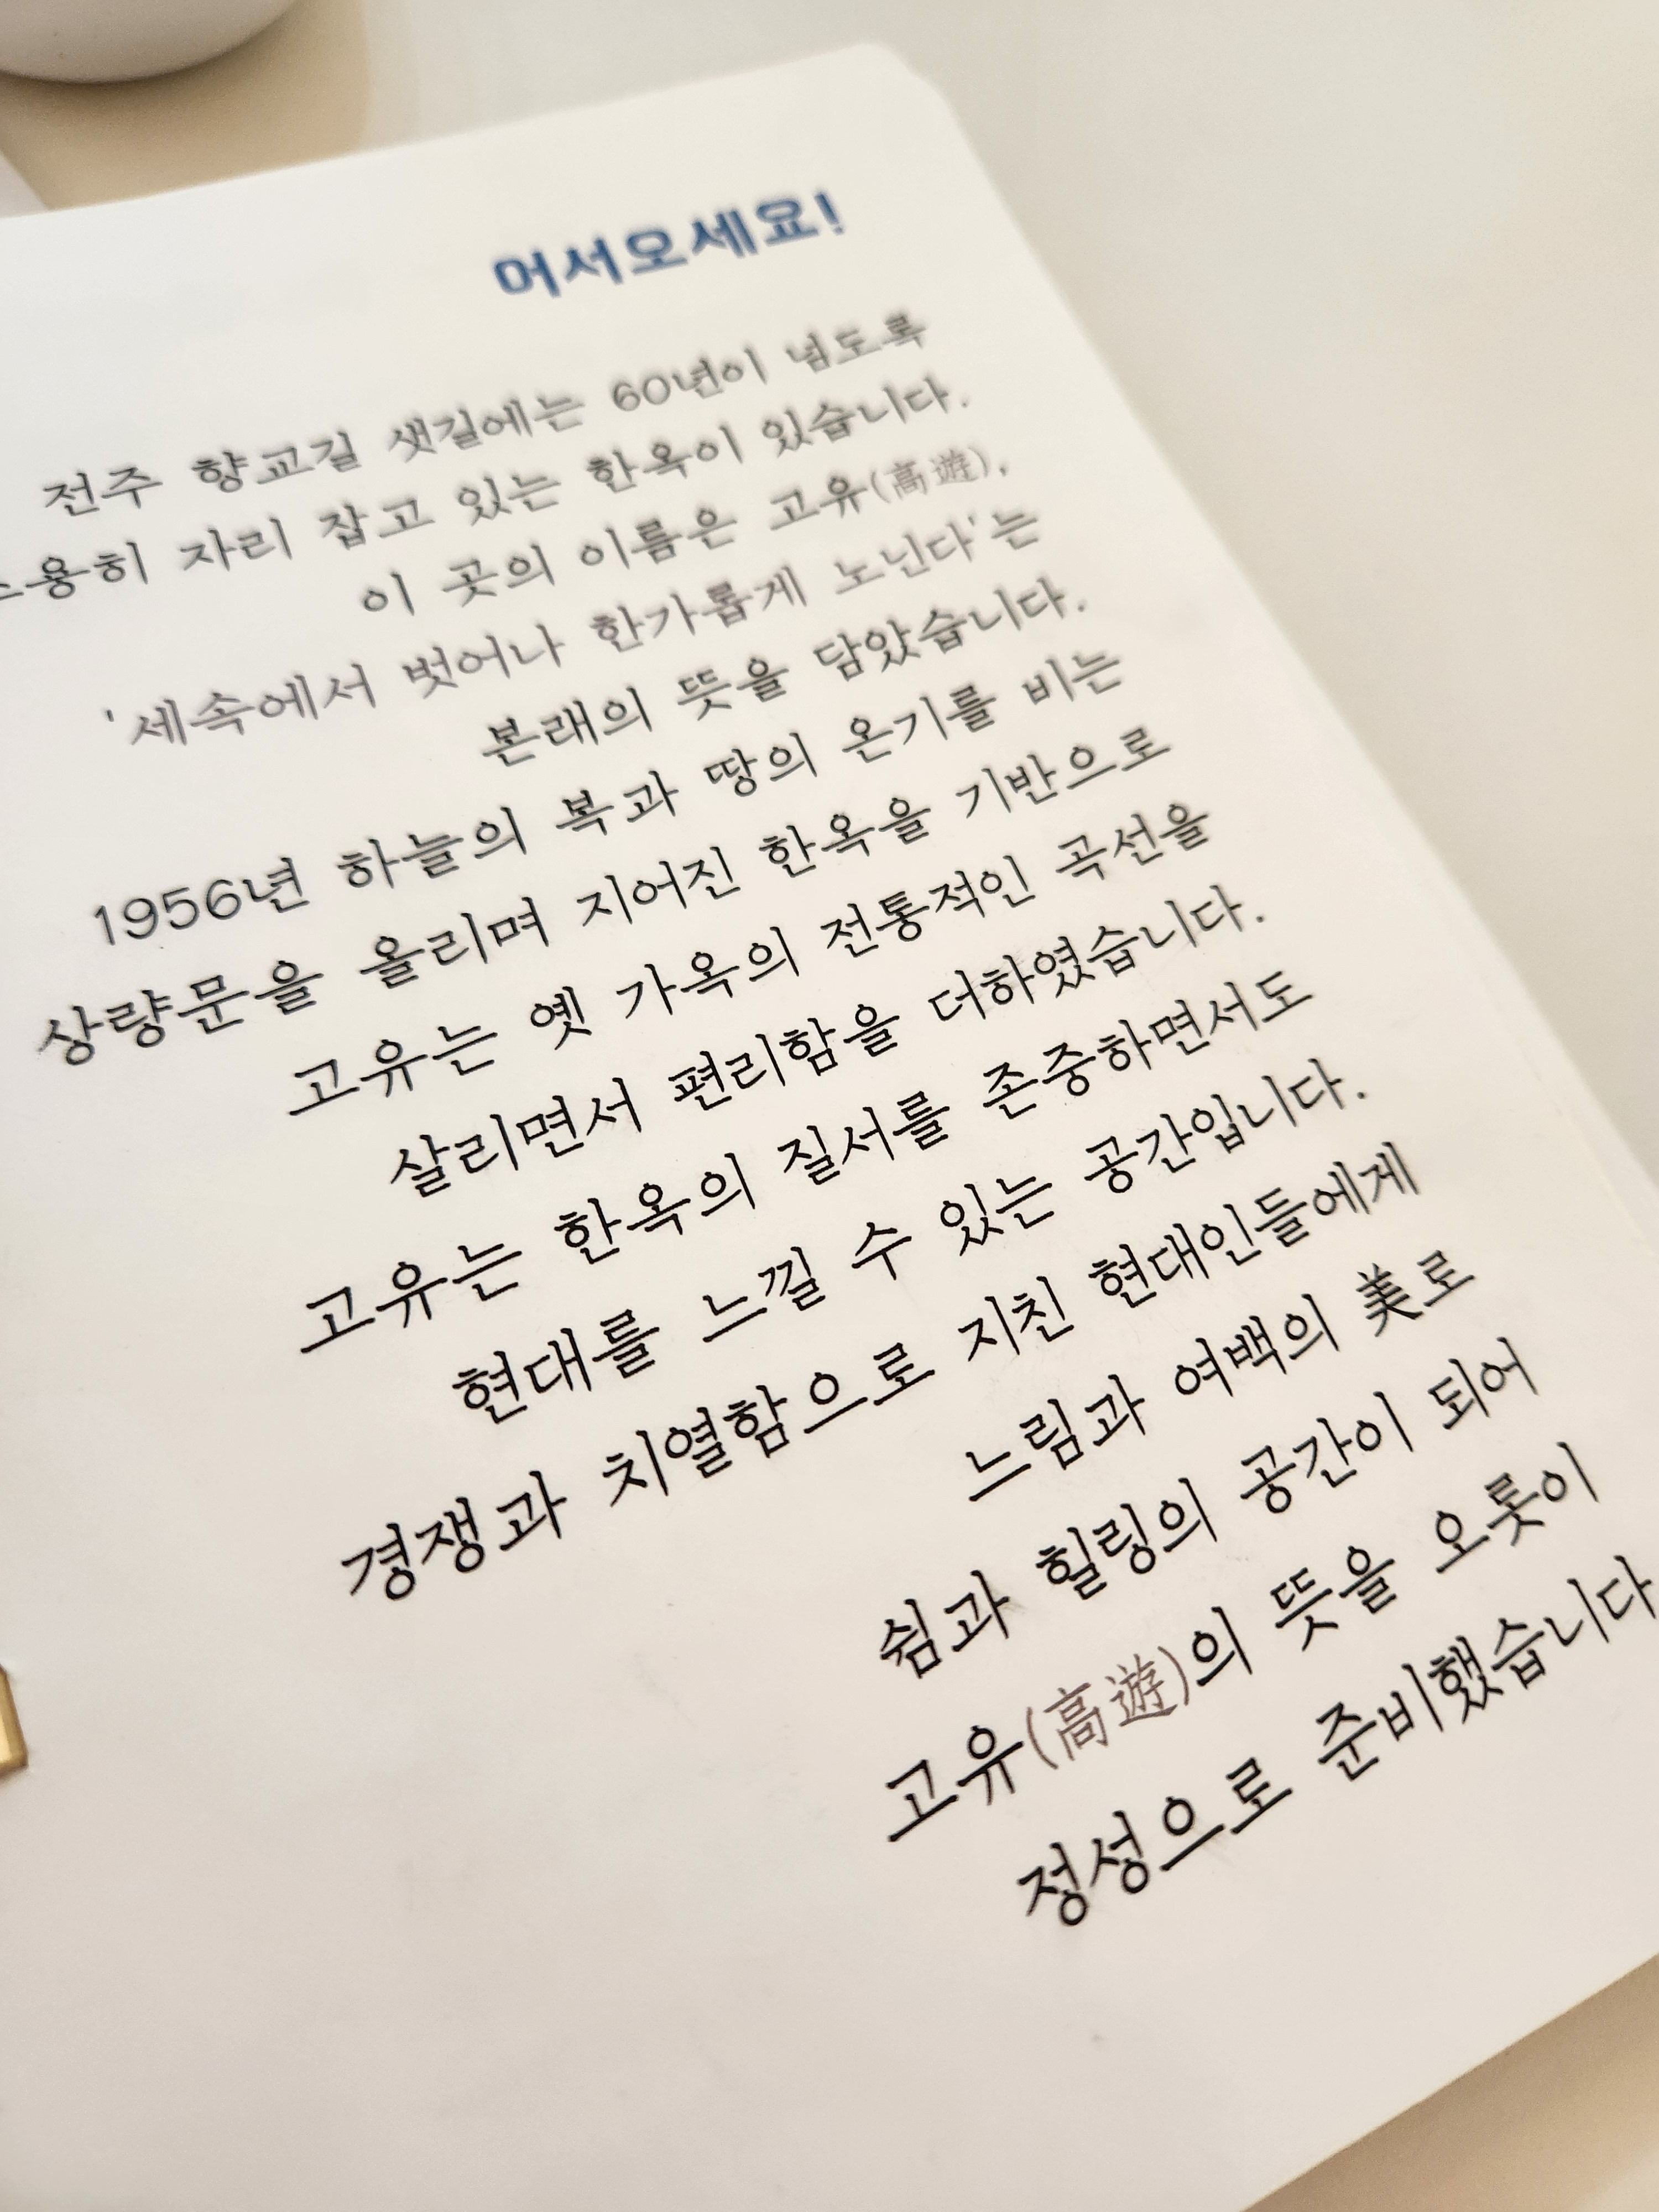 어서오세요!
전주 향교길 샛길에는 60년이 넘도록
조용히 자리 잡고 있는 한옥이 있습니다.
이 곳의 이름은 고유(高遊),
'세속에서 벗어나 한가롭게 노닌다'는
본래의 뜻을 담았습니다.
1956년 하늘의 복과 땅의 온기를 비는
상량문을 올리며 지어진 한옥을 기반으로
고유는 옛 가옥의 전통적인 곡선을
살리면서 편리함을 더하였습니다.
고유는 한옥의 질서를 존중하면서도
현대를 느낄 수 있는 공간입니다.
경쟁과 치열함으로 지친 현대인들에게
느림과 여백의 美로
쉼과 힐링의 공간이 되어
고유(高遊)의 뜻을 오롯이
정성으로 준비했습니다